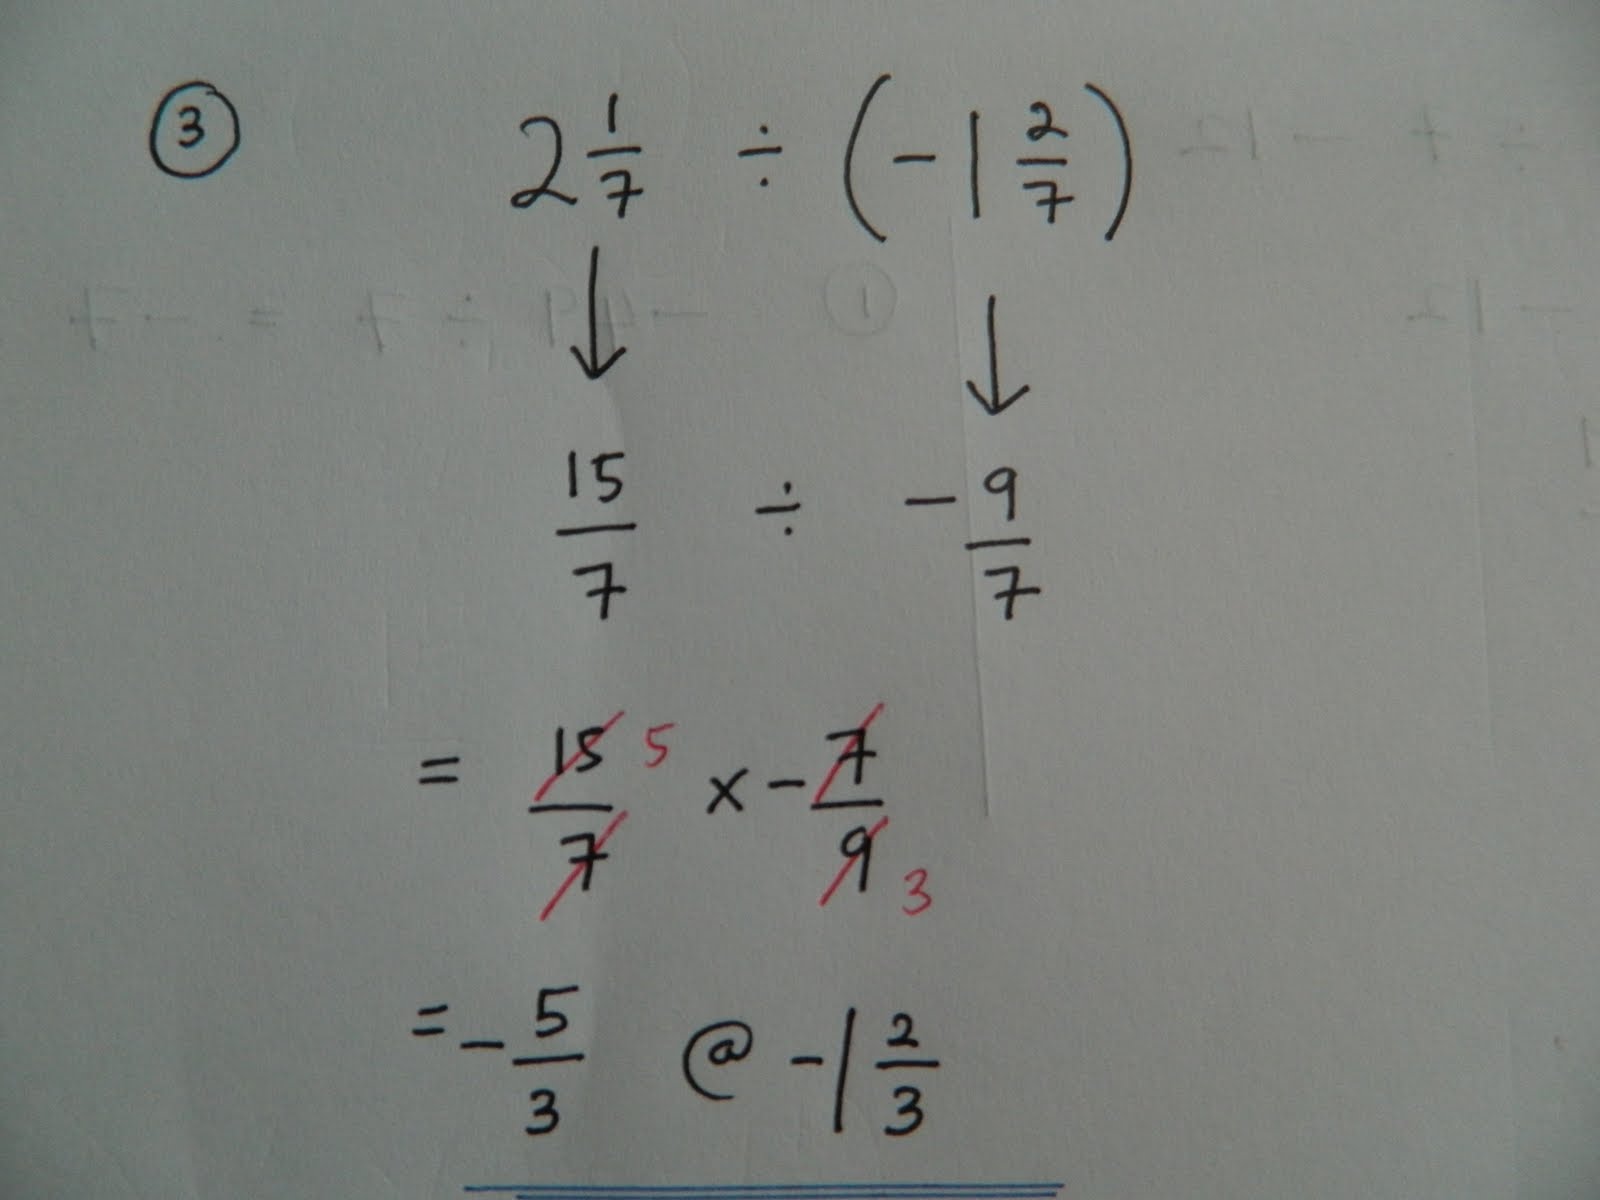 ③ 2 1/7 ÷ (-1 2/7)
↓ ↓
15/7 ÷ -9/7
= 15/7 5 × -7/9 3
= -5/3 @ -1 2/3